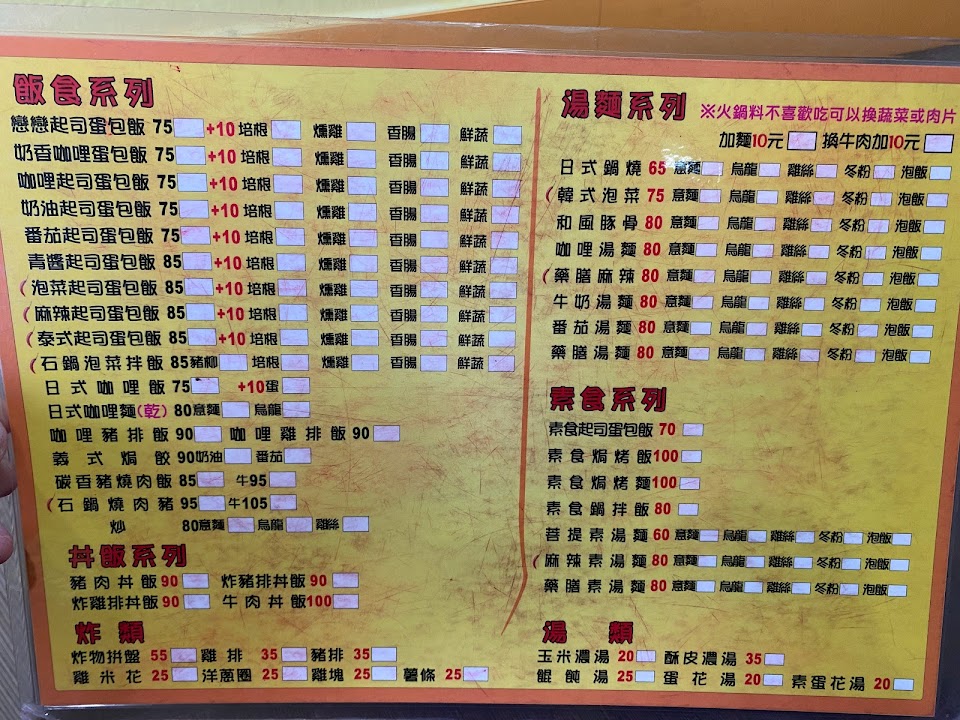 飯食系列
戀戀起司蛋包飯 75 +10 培根 燻雞 香腸 鮮蔬
奶香咖哩蛋包飯 75 +10 培根 燻雞 香腸 鮮蔬
咖哩起司蛋包飯 75 +10 培根 燻雞 香腸 鮮蔬
奶油起司蛋包飯 75 +10 培根 燻雞 香腸 鮮蔬
番茄起司蛋包飯 75 +10 培根 燻雞 香腸 鮮蔬
青醬起司蛋包飯 85 +10 培根 燻雞 香腸 鮮蔬
泡菜起司蛋包飯 85 +10 培根 燻雞 香腸 鮮蔬
麻辣起司蛋包飯 85 +10 培根 燻雞 香腸 鮮蔬
泰式起司蛋包飯 85 +10 培根 燻雞 香腸 鮮蔬
石鍋泡菜拌飯 85 豬柳 培根 燻雞 香腸 鮮蔬
日式咖哩飯 75 +10蛋
日式咖哩麵(乾) 80 意麵 烏龍
咖哩豬排飯 90 咖哩雞排飯 90
義式焗餃 90 奶油 番茄
碳香豬燒肉飯 85 牛95
石鍋燒肉豬 95 牛105
炒 80 意麵 烏龍 雞絲
丼飯系列
豬肉丼飯 90 炸豬排丼飯 90
炸雞排丼飯 90 牛肉丼飯 100
炸類
炸物拼盤 55 雞排 35 豬排 35
雞米花 25 洋蔥圈 25 雞塊 25 薯條 25
湯麵系列 ※火鍋料不喜歡吃可以換蔬菜或肉片
加麵10元 換牛肉加10元
日式鍋燒 65 意麵 烏龍 雞絲 冬粉 泡飯
韓式泡菜 75 意麵 烏龍 雞絲 冬粉 泡飯
和風豚骨 80 意麵 烏龍 雞絲 冬粉 泡飯
咖哩湯麵 80 意麵 烏龍 雞絲 冬粉 泡飯
藥膳麻辣 80 意麵 烏龍 雞絲 冬粉 泡飯
牛奶湯麵 80 意麵 烏龍 雞絲 冬粉 泡飯
番茄湯麵 80 意麵 烏龍 雞絲 冬粉 泡飯
藥膳湯麵 80 意麵 烏龍 雞絲 冬粉 泡飯
素食系列
素食起司蛋包飯 70
素食焗烤飯 100
素食焗烤麵 100
素食鍋拌飯 80
菩提素湯麵 60 意麵 烏龍 雞絲 冬粉 泡飯
麻辣素湯麵 80 意麵 烏龍 雞絲 冬粉 泡飯
藥膳素湯麵 80 意麵 烏龍 雞絲 冬粉 泡飯
湯類
玉米濃湯 20 酥皮濃湯 35
餛飩湯 25 蛋花湯 20 素蛋花湯 20